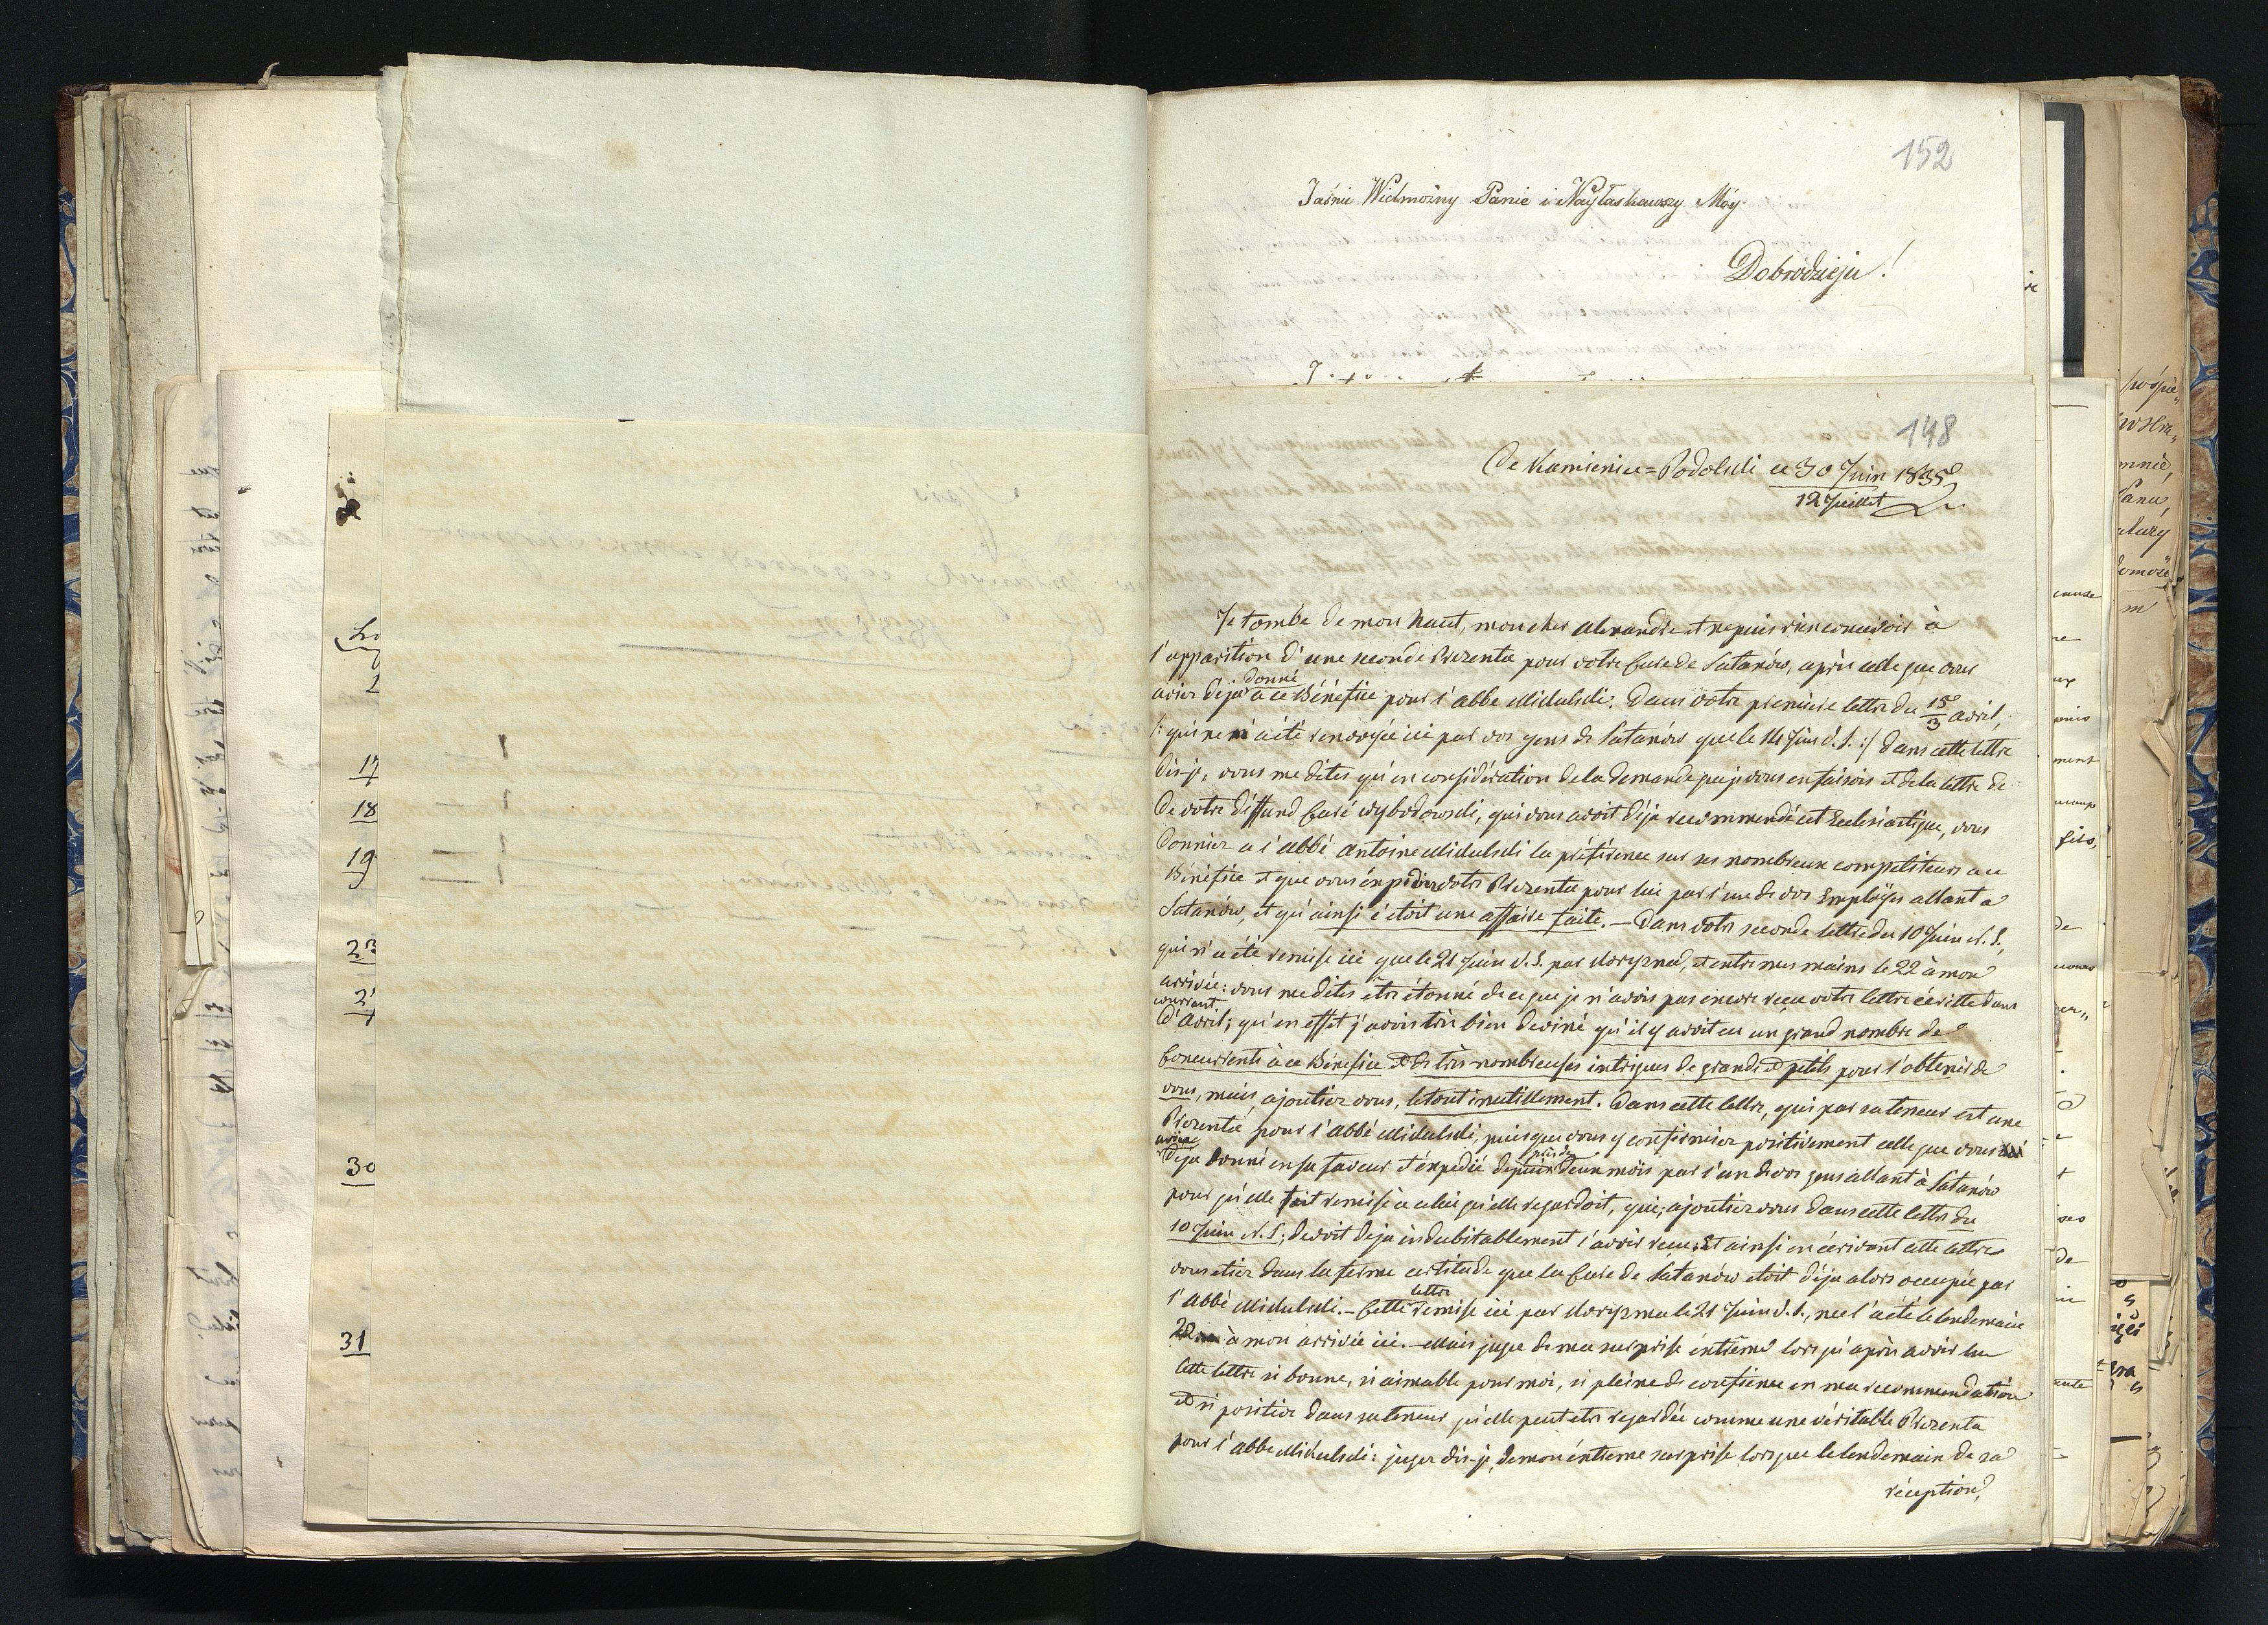 152
Jaśnie Wielmożny Panie i Nayłaskawszy Móy
Dobrodzieju!
148
De Kamieniec=Podolski ce 30 Juin 1835
12 Juillet
Je tombe de mon haut, mon cher Alexandre et ne puis rien concevoir à
l'apparition d'une seconde Prezenta pour votre Cure de Satanów, après celle que vous
aviez deja donné à ce Bénéfice pour l'abbé Mikulski. Dans votre premiere lettre du 15/3 avril,
/: qui ne m'a été renvoyée ici par vos gens de Satanów que le 14 Juin v. S. :/ dans cette lettre
dis-je, vous me dites qu'en considération de la demande que je vous en faisois et de la lettre de
de votre déffund Curé Wybodowski, qui vous avoit déja recommendé cet Eclesiastique, vous
donniez a l'abbé Antoine Mikulski la préférence sur ses nombreux compétiteurs a ce
Bénéfice et que vous éxpediez votre Prezenta pour lui par l'un de vos Employés allant a
Satanów, et qu'ainsi c'étoit une affaire faite. – Dans votre seconde lettre du 10 Juin N. S.,
qui n'a été remise ici que le 21 Juin v. S. par et entre mes mains le 22 à mon
arrivée: vous me dites être étonné de ce que je n'avois pas encore reçu votre lettre écritte dans
courrant
d'Avril; qu'en effet j'avois très bien deviné qu'il y avoit eu un grand nombre de
Concurrents à ce Bénéfice et de très nombreuses intrigues de grands et petits pour l'obtenir de
vous, mais ajoutiez vous, le tout inutillement. Dans cette lettre, qui par sa teneur est une
Prezenta pour l'abbé Mikulski, puisque vous y confirmiez positivement celle que vous
aviez
deja donné en sa faveur et éxpedié depuis près de deux mois par l'un de vos gens allant à Satanów
pour qu'elle fait remise à celui qu'elle regardoit, qui, ajoutiez vous dans cette lettre du
10 Juin N. S., devoit deja indubitablement l'avoir reçu; Et ainsi en écrivant cette lettre
vous etiez dans la ferme certitude que la Cure de Satanów etoit déja alors occupée par
l'abbé Mikulski. – Cette lettre remise ici par le 21 Juin v. S., ne l'a été le lendemain
22 à mon arrivée ici. – Mais jugez de ma surprise éxtrème lorsqu'après avoir lu
cette lettre si bonne, si aimable pour moi, si pleine de confience en ma recommendation
et si positive dans sa teneur qu'elle peut etre regardée comme une véritable Prezenta
pour l'abbé Mikulski: jugez dis-je, de mon éxtreme surprise lorsque le lendemain de sa
réception,
17
18
19
30
31